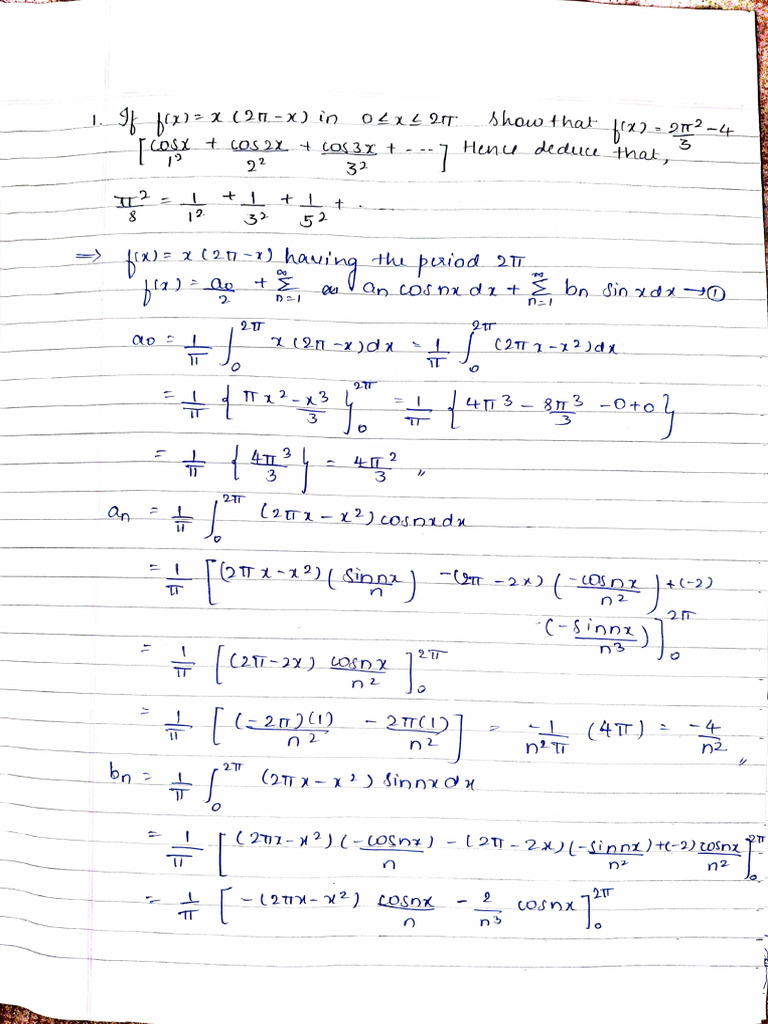 1. If f(x) = x (2π-x) in 0≤x≤2π show that f(x) = 2π²/3 - 4
[cosx/1² + cos2x/2² + cos3x/3² + ---] Hence deduce that,
π²/8 = 1/1² + 1/3² + 1/5² + .
⇒ f(x) = x (2π-x) having the period 2π
f(x) = a0/2 + ∞Σn=1 an cosnx dx + ∞Σn=1 bn sinxdx → ①
a0 = 1/π ∫₀^2π x(2π-x)dx = 1/π ∫₀^2π (2πx-x²)dx
= 1/π { πx² - x³/3 }₀^2π = 1/π { 4π³ - 8π³/3 - 0+0 }
= 1/π { 4π³/3 } = 4π²/3 ,,
an = 1/π ∫₀^2π (2πx - x²) cosnxdx
= 1/π [ (2πx-x²) (sinnx/n) - (2π-2x) (-cosnx/n²) + (-2)
(-sinnx/n³) ]₀^2π
= 1/π [ (2π-2x) cosnx/n² ]₀^2π
= 1/π [ (-2π)(1)/n² - 2π(1)/n² ] = -1/n²π (4π) = -4/n² ,,
bn = 1/π ∫₀^2π (2πx - x²) sinnxdx
= 1/π [ (2πx-x²) (-cosnx)/n - (2π-2x) (-sinnx)/n² + (-2) cosnx/n² ]₀^2π
= 1/π [ -(2πx-x²) cosnx/n - 2/n³ cosnx ]₀^2π